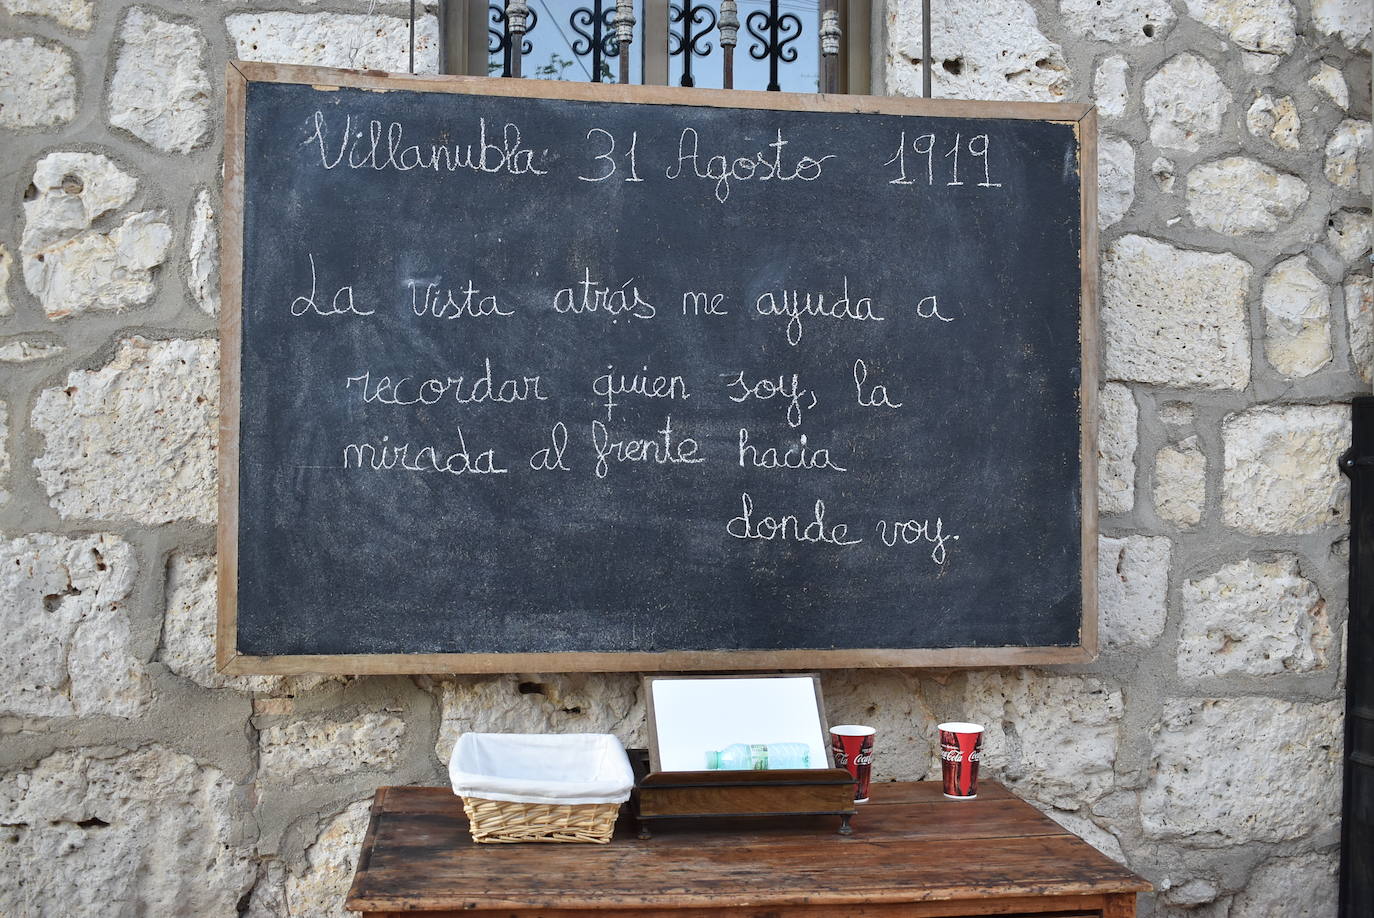 Villanubla 31 Agosto 1919
La vista atrás me ayuda a
recordar quien soy, la
mirada al frente hacia
donde voy.
Coca-Cola
Coca-Cola